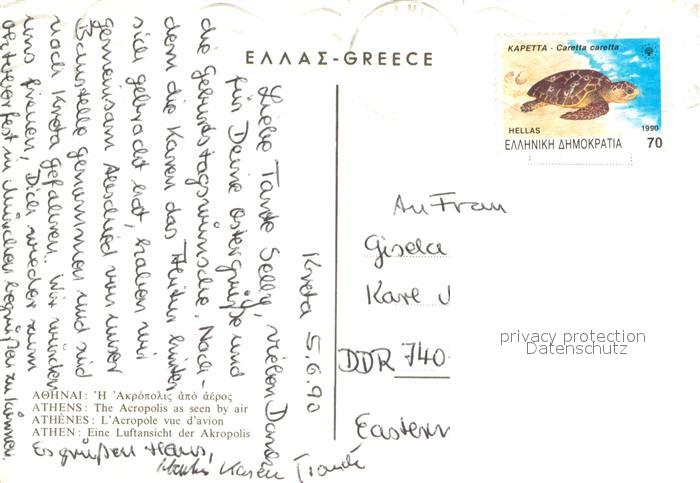 ΕΛΛΑΣ-GREECE
ΚΑΡΕΤΤΑ - Caretta caretta
HELLAS
1990
ΕΛΛΗΝΙΚΗ ΔΗΜΟΚΡΑΤΙΑ 70
Kreta 5.6.90
Liebe Tante Selly, vielen Dank
für Deine Ostergrüße und
die Geburtstagswünsche. Nach-
dem die Karen das Abitur hinter
sich gebracht hat, haben wir
gemeinsam Abschied von unser
Baustelle genommen und sind
nach Kreta gefahren. Wir würden
uns freuen, Dich wieder zum
in München begrüßen zu können.
Es grüßen Hans,
Karen
An Frau
Gisela
Karl
DDR 740
Eastern
privacy protection
Datenschutz
ΑΘΗΝΑΙ: Ἡ Ἀκρόπολις ἀπό ἀέρος
ATHENS: The Acropolis as seen by air
ATHÈNES: L'Acropole vue d'avion
ATHEN: Eine Luftansicht der Akropolis